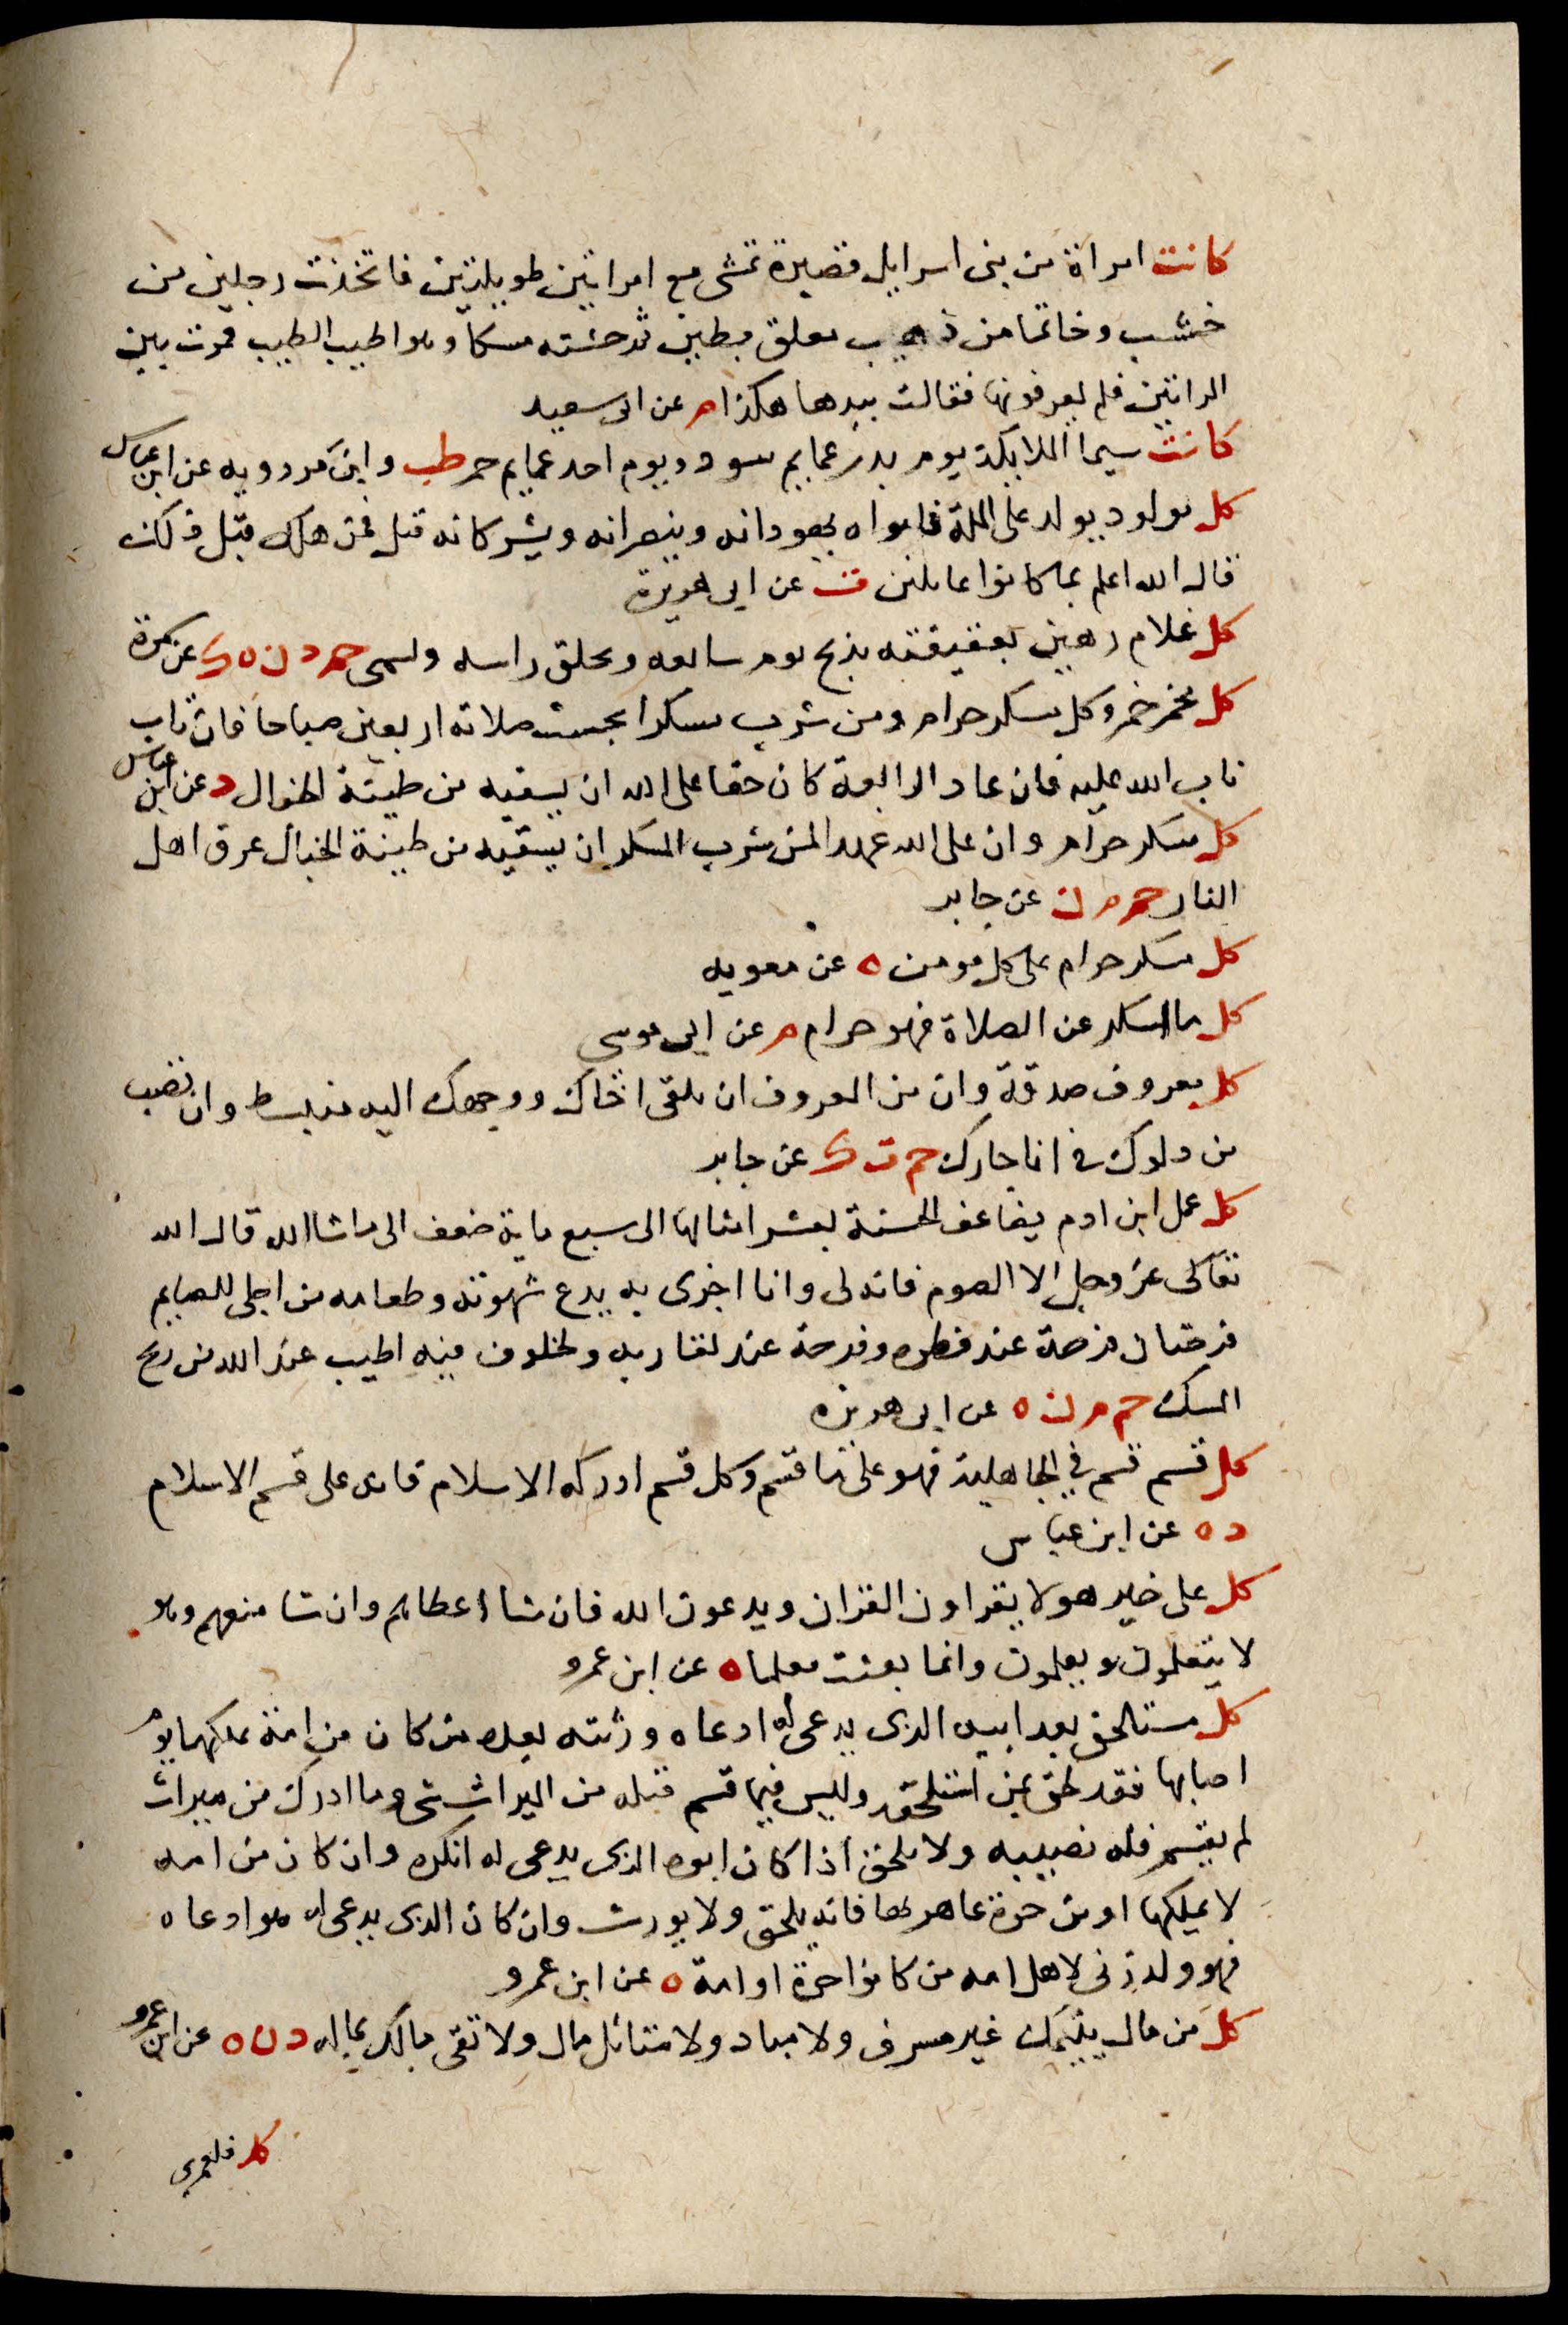 كانت امراة من بنى اسرايل قصيرة تمشى مع امراتين طويلتين فاتخذت رجلين من
خشب وخاتما من ذهب معلق بطين ثم حشته مسكا وهو اطيب الطيب فمرت بين
المراتين فلم يعرفونها فقالت بيدها هكذا م عن ابى سعيد
كانت سيما الملايكة يوم بدر عمايم سود ويوم احد عمايم حمر طب وابن مردويه عن ابن عباس
كل مولود يولد على الملة فابواه يهودانه وينصرانه ويشركانه قيل فمن هلك قبل ذلك
قال الله اعلم بما كانوا عاملين ت عن ابى هريرة
كل غلام رهين بعقيقته يذبح يوم سابعه ويحلق راسه ويسمى حم د ن ه ك عن سمرة
كل مخمر خمر وكل مسكر حرام ومن شرب مسكرا بخست صلاته اربعين صباحا فان تاب
تاب الله عليه فان عاد الرابعة كان حقا على الله ان يسقيه من طينة الخبال د عن ابن عباس
كل مسكر حرام وان على الله عهدا لمن شرب المسكر ان يسقيه من طينة الخبال عرق اهل
النار حم م ن عن جابر
كل مسكر حرام على كل مومن ه عن معويه
كل ما اسكر عن الصلاة فهو حرام م عن ابى موسى
كل معروف صدقة وان من المعروف ان تلقى اخاك ووجهك اليه منبسط وان تصب
من دلوك فى انا جارك حم ت ك عن جابر
كل عمل ابن ادم يضاعف الحسنة بعشر امثالها الى سبع ماية ضعف الى ما شا الله قال الله
تعالى عز وجل الا الصوم فانه لى وانا اجزى به يدع شهوته وطعامه من اجلى للصايم
فرحتان فرحة عند فطره وفرحة عند لقا ربه ولخلوف فيه اطيب عند الله من ريح
المسك حم م ن ه عن ابى هريره
كل قسم قسم فى الجاهلية فهو على ما قسم وكل قسم ادركه الاسلام فانه على قسم الاسلام
د ه عن ابن عباس
كل على خير هولا يقراون القران ويدعون الله فان شا اعطاهم وان شا منعهم وهو
لا يتعلمون ويعلمون وانما بعثت معلما ه عن ابن عمرو
كل مستلحق بعد ابيه الذى يدعى له ادعاه ورثته بعده من كان من امة يملكها يوم
اصابها فقد لحق بمن استلحقه وليس فيما قسم قبله من الميراث شى وما ادرك من ميراث
لم يقسم فله نصيبه ولا يلحق اذا كان ابوه الذى يدعى له انكره وان كان من امه
لا يملكها او من حرة عاهر بها فانه يلحق ولا يورث وان كان الذى يدعى له هو ادعاه
فهو ولد زنى لاهل امه من كانوا حرة او امة ه عن ابن عمرو
كل من مال يتيمك غير مسرف ولا مباد ولا متاثل مال ولا تقى مالك بماله د ن ه عن ابن عمرو
كل فلعمرى